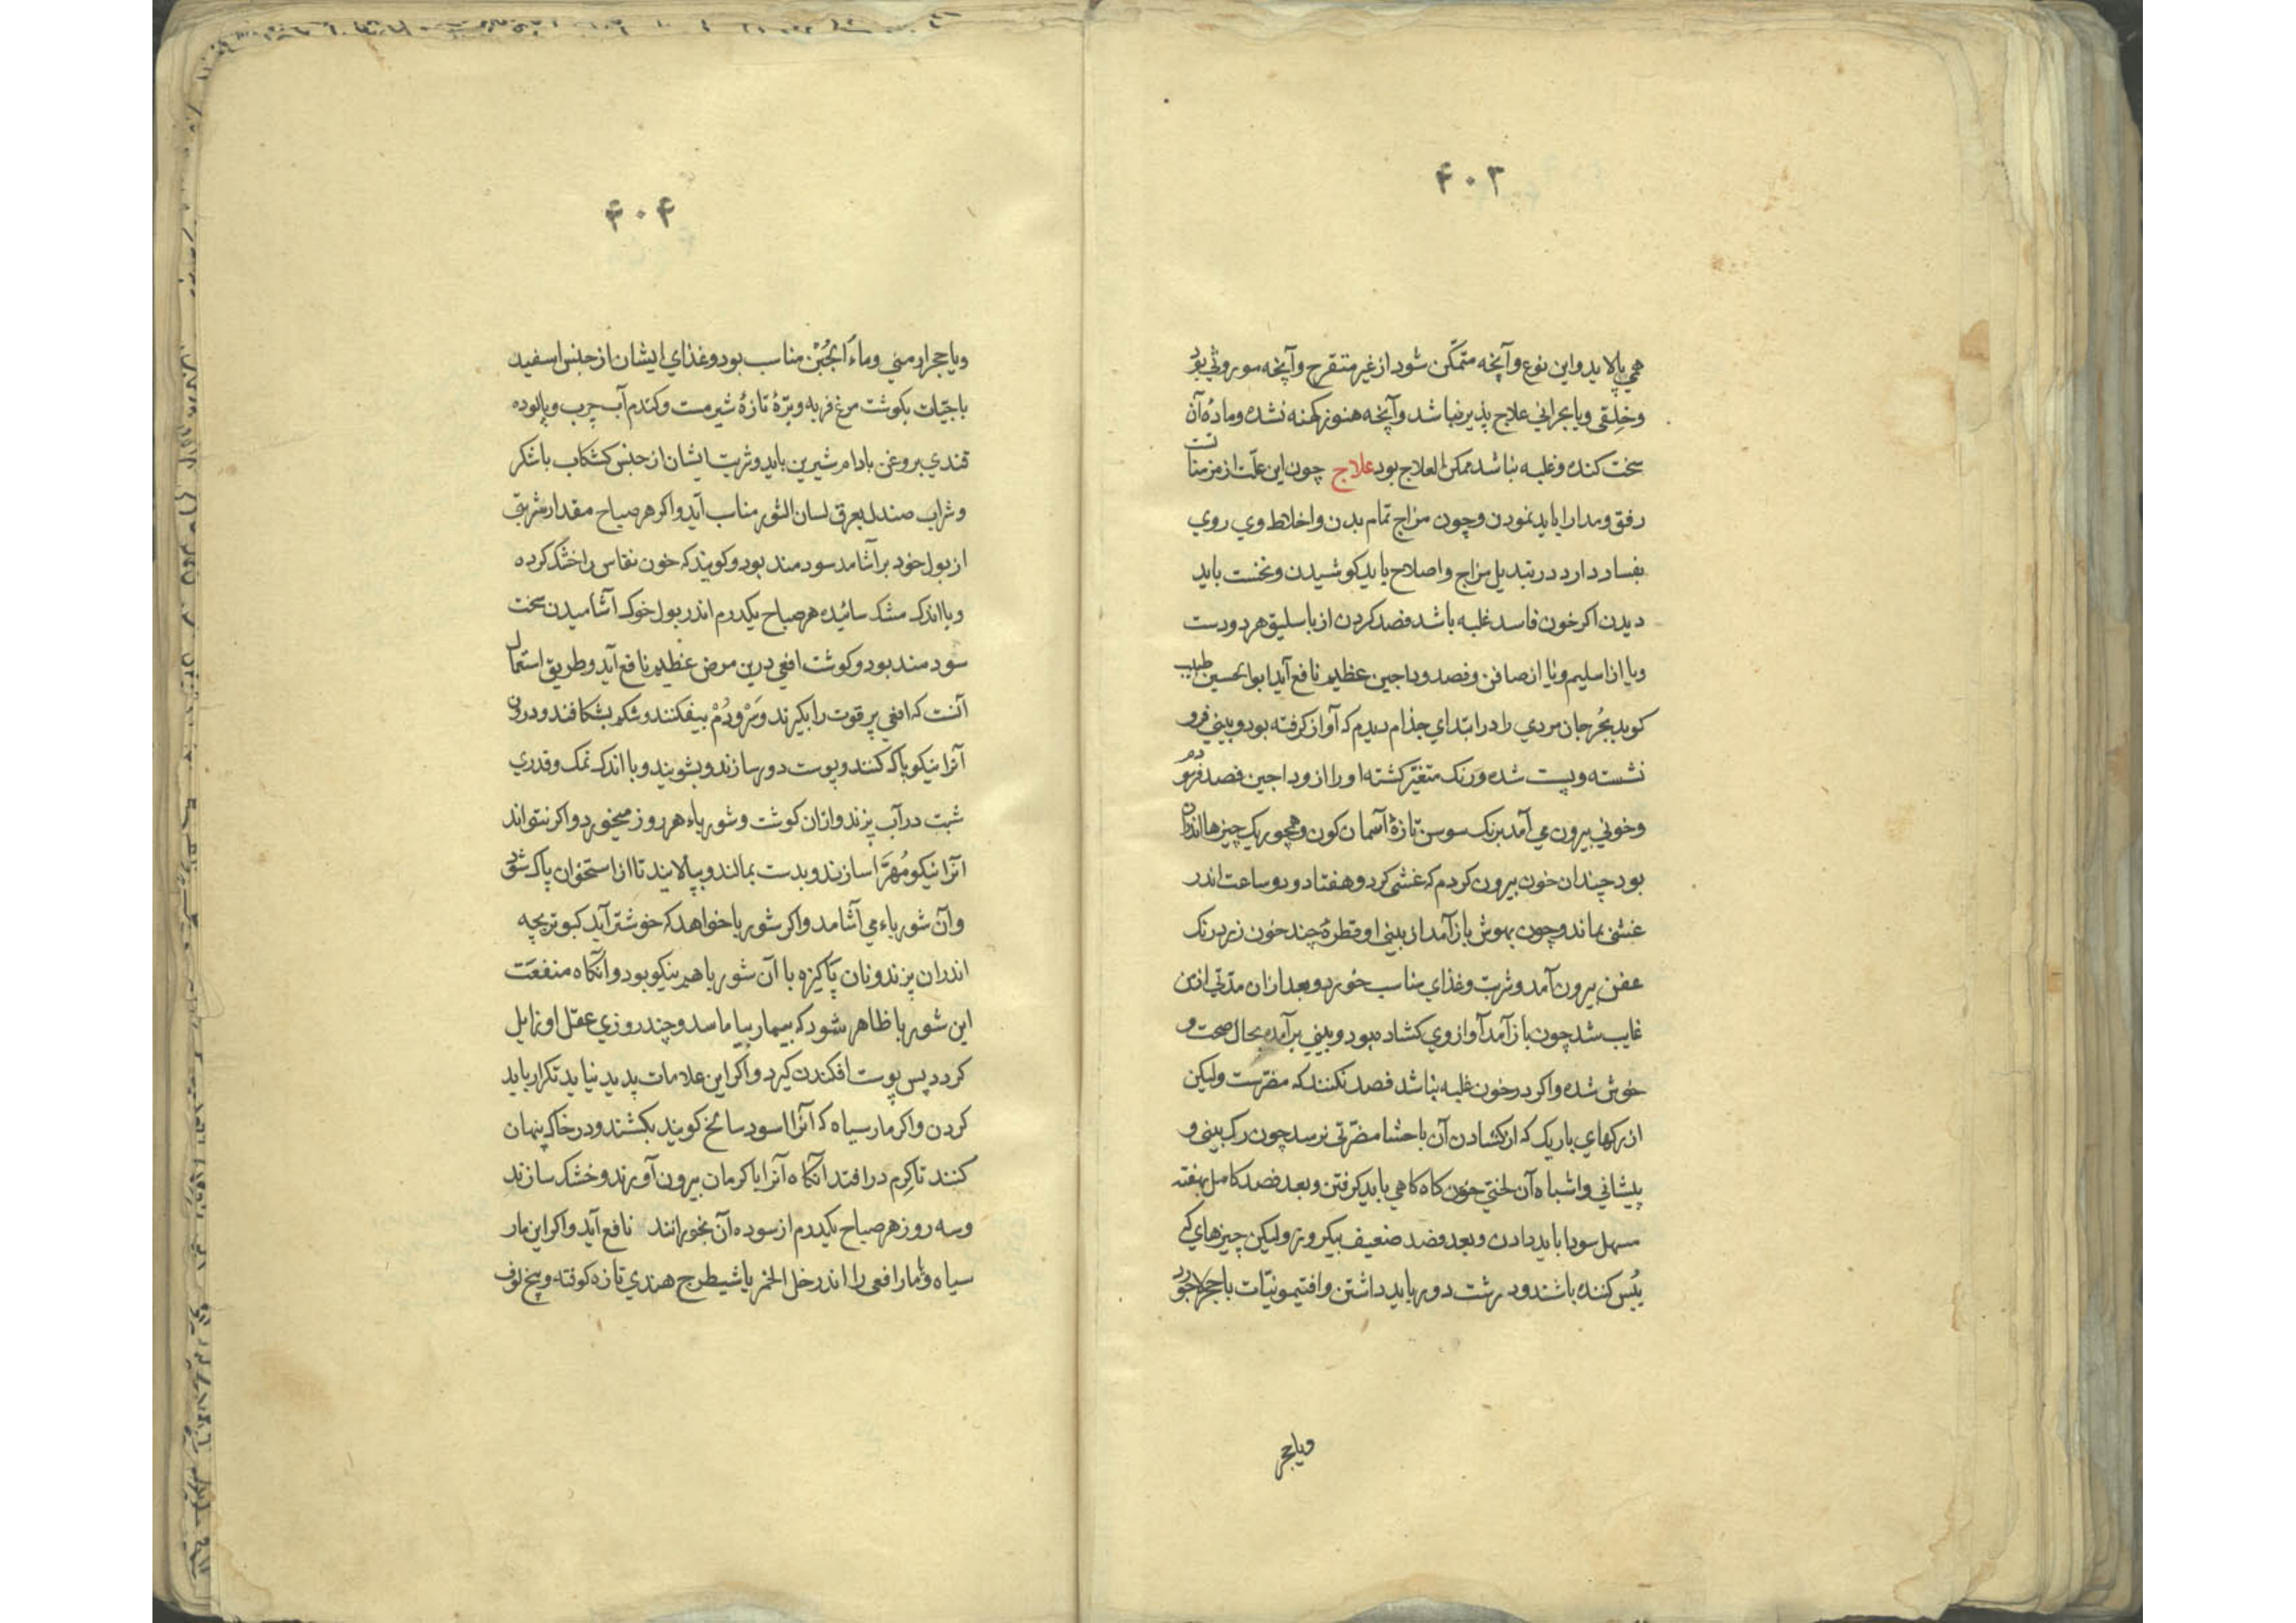 ۴۰۳
همی پالاید و این نوع و آنچه متمکّن شود از غیر متقرح و آنچه موروثی بود
و خِلقی و یا بحرانی علاج پذیر نباشد و آنچه هنوز کهنه نشده و مادّه آن
سخت کنده و غلبه نباشد ممکن العلاج بود علاج چون این علّت از مزمنا تست
رفق و مدارا باید نمودن و چون مزاج تمام بدن و اخلاط وی روی
بفساد دارد در تبدیل مزاج و اصلاح باید کوشیدن و نخست باید
دیدن اکر خون فاسد غلبه باشد فصد کردن از باسلیق هر دو دست
و یا از اسلیم و یا از صافن و فصد وداجین عظیم نافع آید ابوالحسین طبیب
کوید بجُرجان مردی را در ابتدای جذام دیدم که آواز کرفته بود و بینی فرو
نشسته و پست شده و رنک متغیّر کشته او را از وداجین فصد فرمودم
و خونی بیرون می آمد برنک سوسن تازهٔ آسمان کون و همچو ریک چیزها اندران
بود چندان خون بیرون کردم که غشی کرد و هفتاد و دو ساعت اندر
غشی بماند و چون بهوش باز آمد از بینی او قطرهٔ چند خون زرد رنک
عفن بیرون آمد و شربت و غذای مناسب خورد و بعد ازان مدّتی از من
غایب شد چون باز آمد آواز وی کشاده بود و بینی برآمده بحال صحت و
خوش شده و اکر در خون غلبه نباشد فصد نکنند که مضرّست ولیکن
از رکهای باریک که از کشادن آن باحشا مضرّتی نرسد چون رک بینی و
پیشانی و اشباه آن لختی خون کاه کاهی باید کرفتن و بعد فصد کامل بهفته
مسهل سودا باید دادن و بعد فصد ضعیف بیکروز ولیکن چیزهای که
یُبس کننده باشند و درشت دور باید داشتن و افتیمونیّات با حجر لاجورد
و یا حجر
۴۰۴
و یا حجر ارمنی و ماءُ الجُبن مناسب بود و غذای ایشان از جنس اسفید
باجیّات بکوشت مرغ فربه و برّهٔ تازهٔ شیرمست و کندم آب چرب و پالوده
قندی بروغن بادام شیرین باید و شربت ایشان از جنس کشکاب با شکر
و شراب صندل بعرق لسان الثور مناسب آید و اکر هر صباح مقدار شربتی
از بول خود برآشامد سودمند بود و کویند که خون نفاس را خشک کرده
و با اندک مشک سائیده هر صباح یکدرم اندر بول خوک آشامیدن سخت
سودمند بود و کوشت افعی درین مرض عظیم نافع آید و طریق استعمال
آنست که افعی پرقوت را بکیرند و سَر و دُمْ بیفکنند و شکم بشکافند و درون
آنرا نیکو پاک کنند و پوست دور سازند و بشویند و با اندک نمک و قدری
شبت در آب پزند و ازان کوشت و شورباء هر روز میخورد و اکر نتواند
آنرا نیکو مُهَرَّا سازند و بدست بمالند و بپالایند تا از استخوان پاک شود
و آن شورباء می آشامد و اکر شوربا خواهد که خوشتر آید کبوتر بچه
اندران پزند و نان پاکیزه با آن شوربا هم نیکو بود و آنکاه منفعَت
این شوربا ظاهر شود که بیمار بیاماسد و چند روزی عقل او زایل
کردد پس پوست افکندن کیرد و اکر این علامات پدید نیاید تکرار باید
کردن و اکر مار سیاه که آنرا اسود سالخ کویند بکشند و در خاک پنهان
کنند تا کِرم در افتد آنکاه آنرا با کرمان بیرون آورند و خشک سازند
و سه روز هر صباح یکدرم از سوده آن بخورانند نافع آید و اکر این مار
سیاه و یا مار افعی را اندر خل الخمر با شیطرج هندی تازه کوفته و بیخ لوف